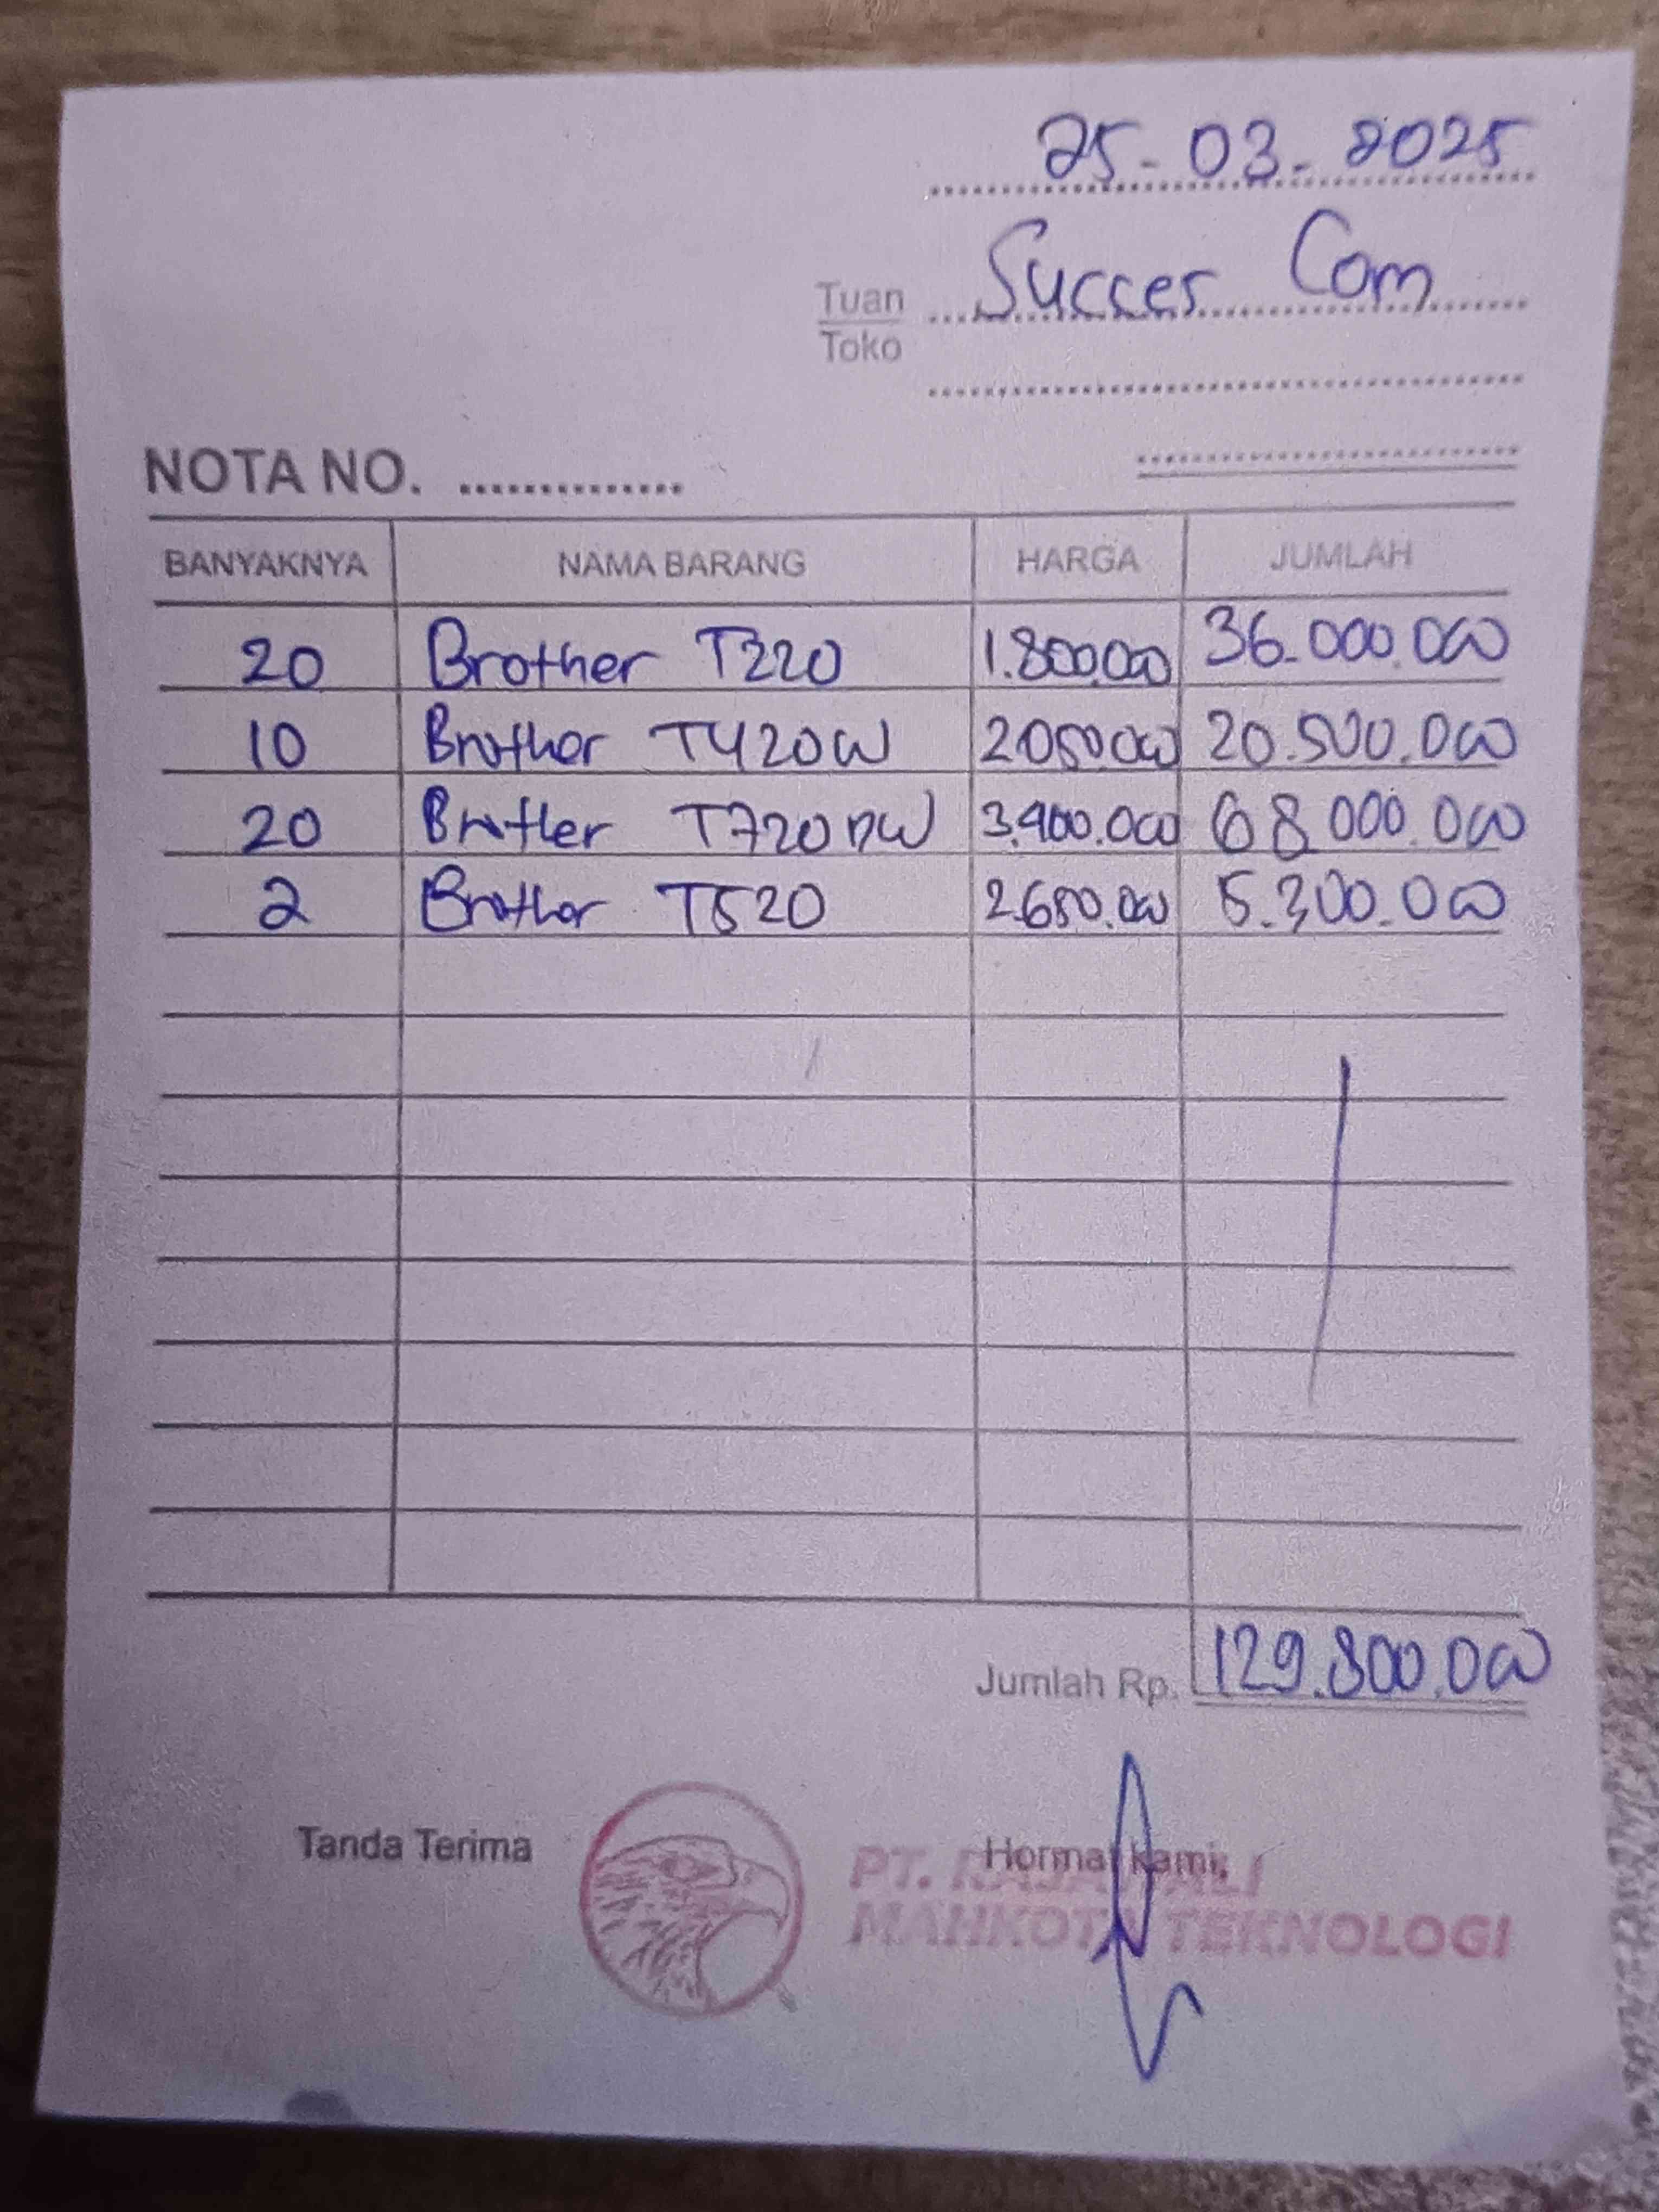 25-03-2025
Tuan Succes Com
Toko
NOTA NO. ..............
BANYAKNYA NAMA BARANG HARGA JUMLAH
20 Brother T220 1.800.000 36.000.000
10 Brother T420W 2.050.000 20.500.000
20 Brother T720DW 3.400.000 68.000.000
2 Brother T520 2.650.000 5.300.000
Jumlah Rp. 129.800.000
Tanda Terima Hormat kami,
PT. RAJAWALI
MAHKOTA TEKNOLOGI